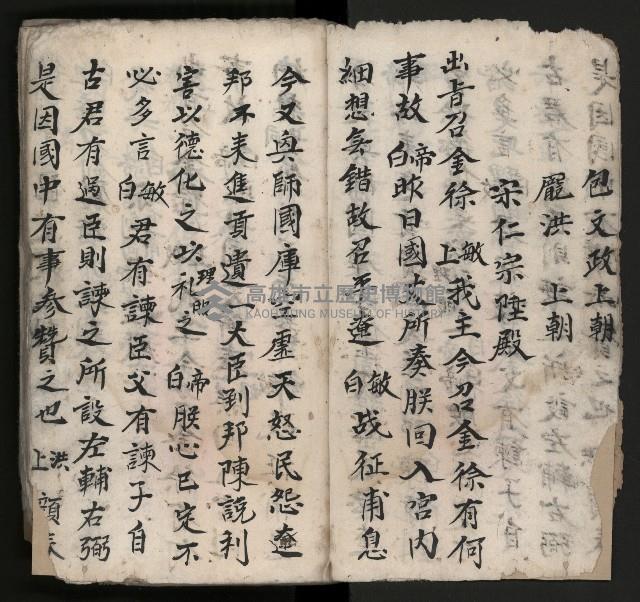 包文政上朝
龐洪上朝
宋仁宗陞殿
出旨召金徐 敏上 我主今召金徐有何
事故 帝白 昨日國丈所奏朕回入宮內
細想無錯故召 遼 敏白 战征甫息
今又興師國庫 虛天怒民怨遼
邦不来進貢遺大臣到邦陳說利
害以德化之以礼理 之 帝白 朕心已定不
必多言 敏白 君有諫臣父有諫子自
古君有過臣則諫之所設左輔右弼
是因國中有事參贊之也 洪上
高雄市立歷史博物館
KAOHSIUNG MUSEUM OF HISTORY